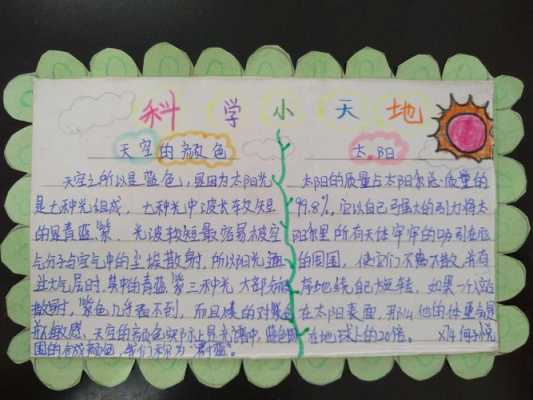 科学小天地
天空的颜色
天空之所以是蓝色,是因为太阳光
是七种光组成,七种光中波长较短
的是青蓝紫,光波较短最容易被空
气分子与空气中的尘埃散射,所以阳光
过大气层时,其中的青蓝紫三种光大部分
散射,紫色几乎看不到,而且
敏感,天空的颜色实际上是光谱中蓝色
围的合成颜色,我们称为"蔚蓝"。
太阳
太阳的质量占太阳系总质量的
99.8%,它以自己强大的引力将太
阳系里所有天体牢牢的吸引在
的周围,使它们不离不散,并有
地绕自己旋转,如果一个
在太阳表面,那么他的体重
在地球上的20倍。